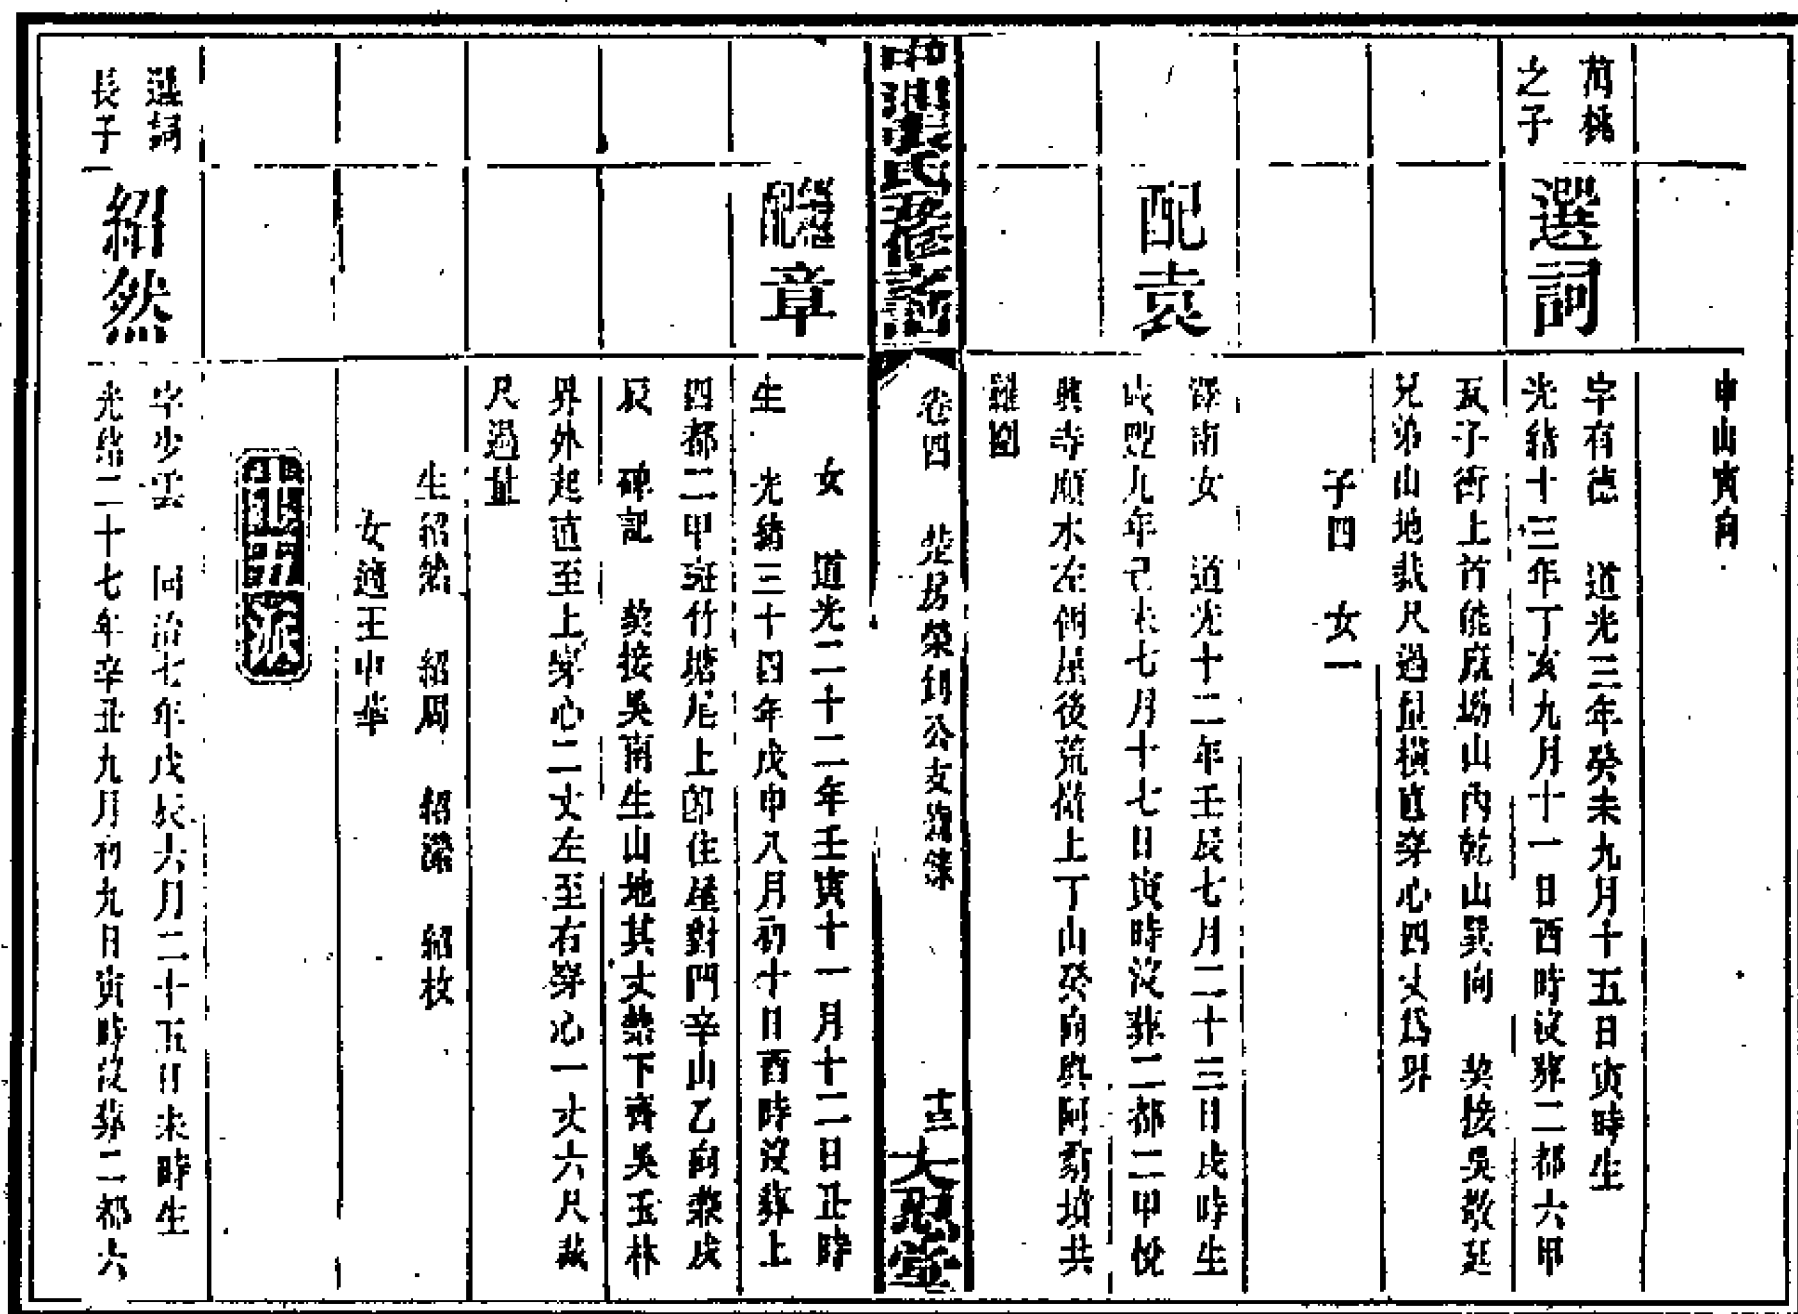 申山寅向
萬桃
之子
選詞
字有德 道光三年癸未九月十五日寅時生
光緒十三年丁亥九月十一日酉時没葬二都六甲
瓦子衝上首能廠坳山內乾山巽向 契接吳敬廷
兄弟山地裁尺過量橫直穿心四丈爲界
子四 女一
配袁
澤南女 道光十二年壬辰七月二十三日戌時生
咸豐九年己未七月十七日寅時没葬二都二甲悅
興寺順水左側屋後荒 上丁山癸向與阿翁墳共
羅圍
氏五修族譜
卷四 房榮釗公支 
十三
大忍堂
繼配章
女 道光二十二年壬寅十一月十二日丑時
生 光緒三十四年戊申八月初十日酉時没葬上
四都二甲班竹塘尾上節住屋對門辛山乙向兼戌
辰 碑記 契接吳南生山地其丈禁下齊吳玉林
界外起直至上穿心二丈左至右穿心一丈六尺裁
尺過量
生紹然 紹周 紹濂 紹枚
女適王申華
派
選詞
長子
紹然
字少雲 同治七年戊辰六月二十五日未時生
光緒二十七年辛丑九月初九日寅時没葬二都六